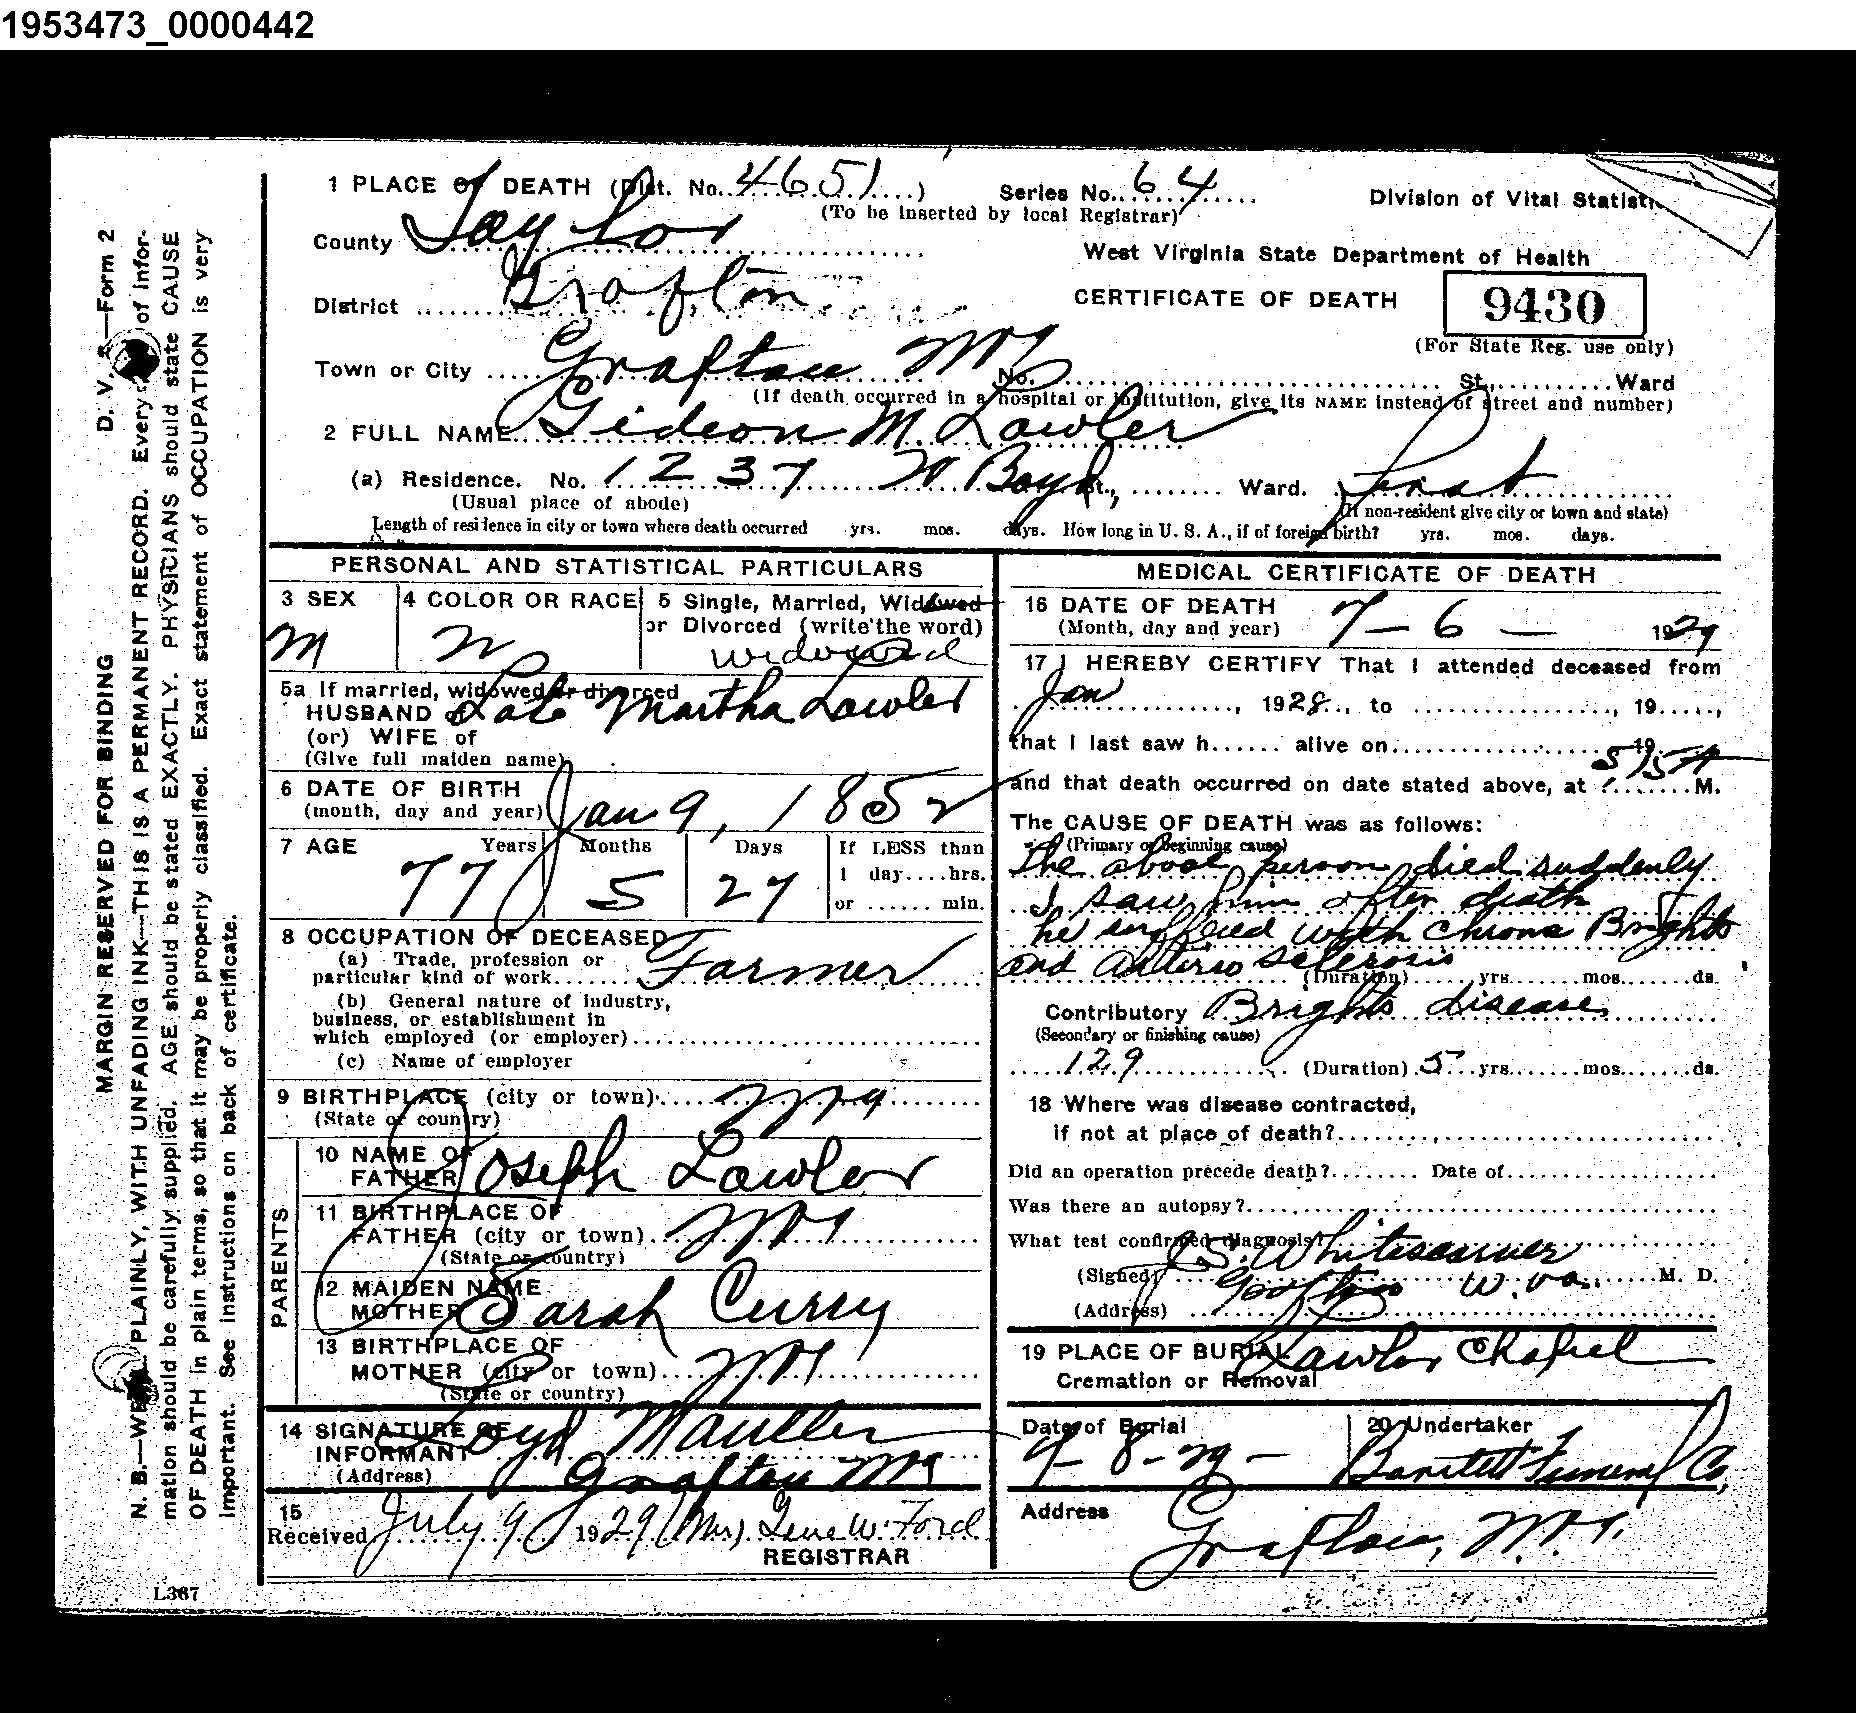 1953473_0000442
1 PLACE OF DEATH (Dist. No. 4651) Series No. 64 Division of Vital Statist
(To be inserted by local Registrar)
County Taylor
West Virginia State Department of Health
District Grafton
CERTIFICATE OF DEATH 9430
(For State Reg. use only)
Town or City Grafton No. St., Ward
(If death occurred in a hospital or institution, give its NAME instead of street and number)
2 FULL NAME Gideon M. Lawler
(a) Residence. No. 1237 W Boyd St., Ward. First
(Usual place of abode) (If non-resident give city or town and state)
Length of residence in city or town where death occurred yrs. mos. days. How long in U. S. A., if of foreign birth? yrs. mos. days.
PERSONAL AND STATISTICAL PARTICULARS
3 SEX 4 COLOR OR RACE 5 Single, Married, Widowed
or Divorced (write the word)
M W widowed
5a If married, widowed or divorced
HUSBAND of Late Martha Lawler
(or) WIFE of
(Give full maiden name)
6 DATE OF BIRTH
(month, day and year) Jan 9, 1852
7 AGE Years Months Days If LESS than
1 day....hrs.
or ...... min.
77 5 27
8 OCCUPATION OF DECEASED
(a) Trade, profession or
particular kind of work Farmer
(b) General nature of industry,
business, or establishment in
which employed (or employer)
(c) Name of employer
9 BIRTHPLACE (city or town)
(State or country)
PARENTS
10 NAME OF
FATHER Joseph Lawler
11 BIRTHPLACE OF
FATHER (city or town)
(State or country)
12 MAIDEN NAME
MOTHER Sarah Curry
13 BIRTHPLACE OF
MOTHER (city or town)
(State or country)
14 SIGNATURE OF
INFORMANT Loyd
(Address) Grafton
15
Received July 9 1929 (Mrs) Gene W. Ford
REGISTRAR
MEDICAL CERTIFICATE OF DEATH
16 DATE OF DEATH
(Month, day and year) 7 - 6 - 1929
17 I HEREBY CERTIFY That I attended deceased from
Jan, 1928, to ......, 19.....,
that I last saw h...... alive on...... 19
and that death occurred on date stated above, at M.
The CAUSE OF DEATH was as follows:
(Primary or beginning cause)
The above person died suddenly
I saw him after death
he suffered with chronic Brights
and arterio sclerosis
(Duration) yrs. mos. ds.
Contributory Brights disease
(Secondary or finishing cause)
129 (Duration) 5 yrs. mos. ds.
18 Where was disease contracted,
if not at place of death?
Did an operation precede death? Date of
Was there an autopsy?
What test confirmed diagnosis?
(Signed) Whitescarver M. D.
(Address) Grafton W. Va.
19 PLACE OF BURIAL Lawler Chapel
Cremation or Removal
Date of Burial 20 Undertaker
7-8-29- Bartlett Funeral Co,
Address Grafton,
D. V. S.—Form 2
MARGIN RESERVED FOR BINDING
N. B.—WRITE PLAINLY, WITH UNFADING INK—THIS IS A PERMANENT RECORD. Every of infor-
mation should be carefully supplied. AGE should be stated EXACTLY. PHYSICIANS should state CAUSE
OF DEATH in plain terms, so that it may be properly classified. Exact statement of OCCUPATION is very
important. See instructions on back of certificate.
L367